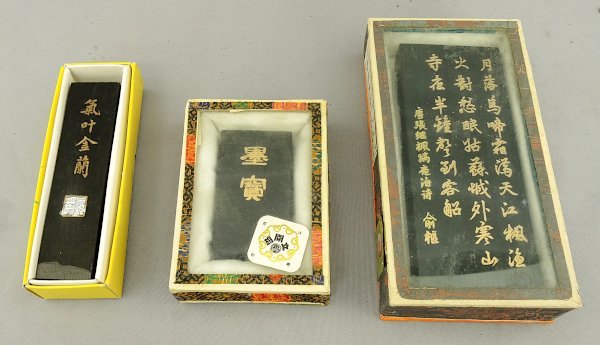 氣叶金蘭
墨寶
月落烏啼霜滿天江楓漁
火對愁眠姑蘇城外寒山
寺夜半鐘聲到客船
唐張繼楓橋夜泊詩 俞樾